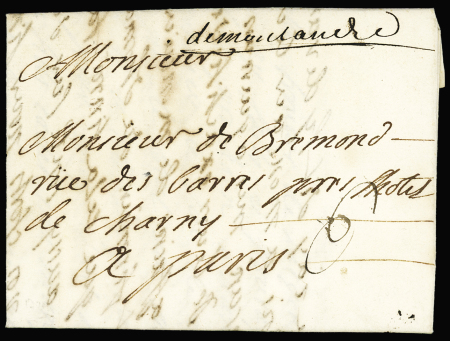 demontauche
Monsieur
Monsieur de Bremond
rue des barres pres lhotel
de charny
a paris